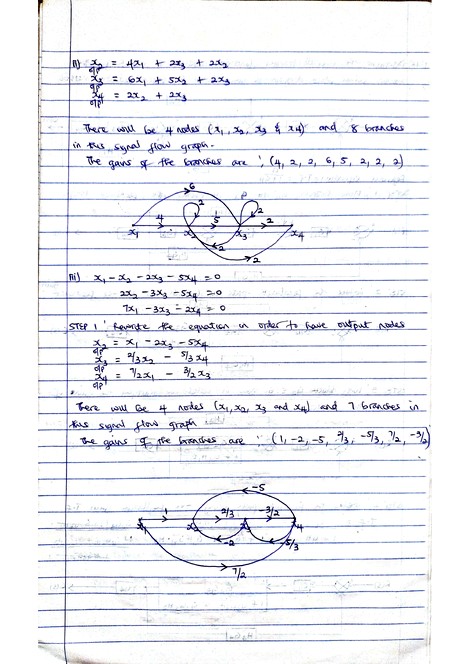 ii) x₂ = 4x₁ + 2x₃ + 2x₂
o/p
x₃ = 6x₁ + 5x₂ + 2x₃
o/p
x₄ = 2x₂ + 2x₃
o/p
There will be 4 nodes (x₁, x₂, x₃ & x₄) and 8 branches
in this signal flow graph.
The gains of the branches are : (4, 2, 2, 6, 5, 2, 2, 2)
6
2
2
4
5
2
x₁
x₂
x₃
x₄
2
2
iii) x₁ - x₂ - 2x₃ - 5x₄ = 0
2x₂ - 3x₃ - 5x₄ = 0
7x₁ - 3x₃ - 2x₄ = 0
STEP 1 : Rewrite the equation in order to have output nodes
x₂ = x₁ - 2x₃ - 5x₄
o/p
x₃ = 2/3x₂ - 5/3x₄
o/p
x₄ = 7/2x₁ - 3/2x₃
o/p
There will be 4 nodes (x₁, x₂, x₃ and x₄) and 7 branches in
this signal flow graph
The gains of the branches are : (1, -2, -5, 2/3, -5/3, 7/2, -3/2)
-5
1
2/3
-3/2
x₂
-2
-5/3
7/2